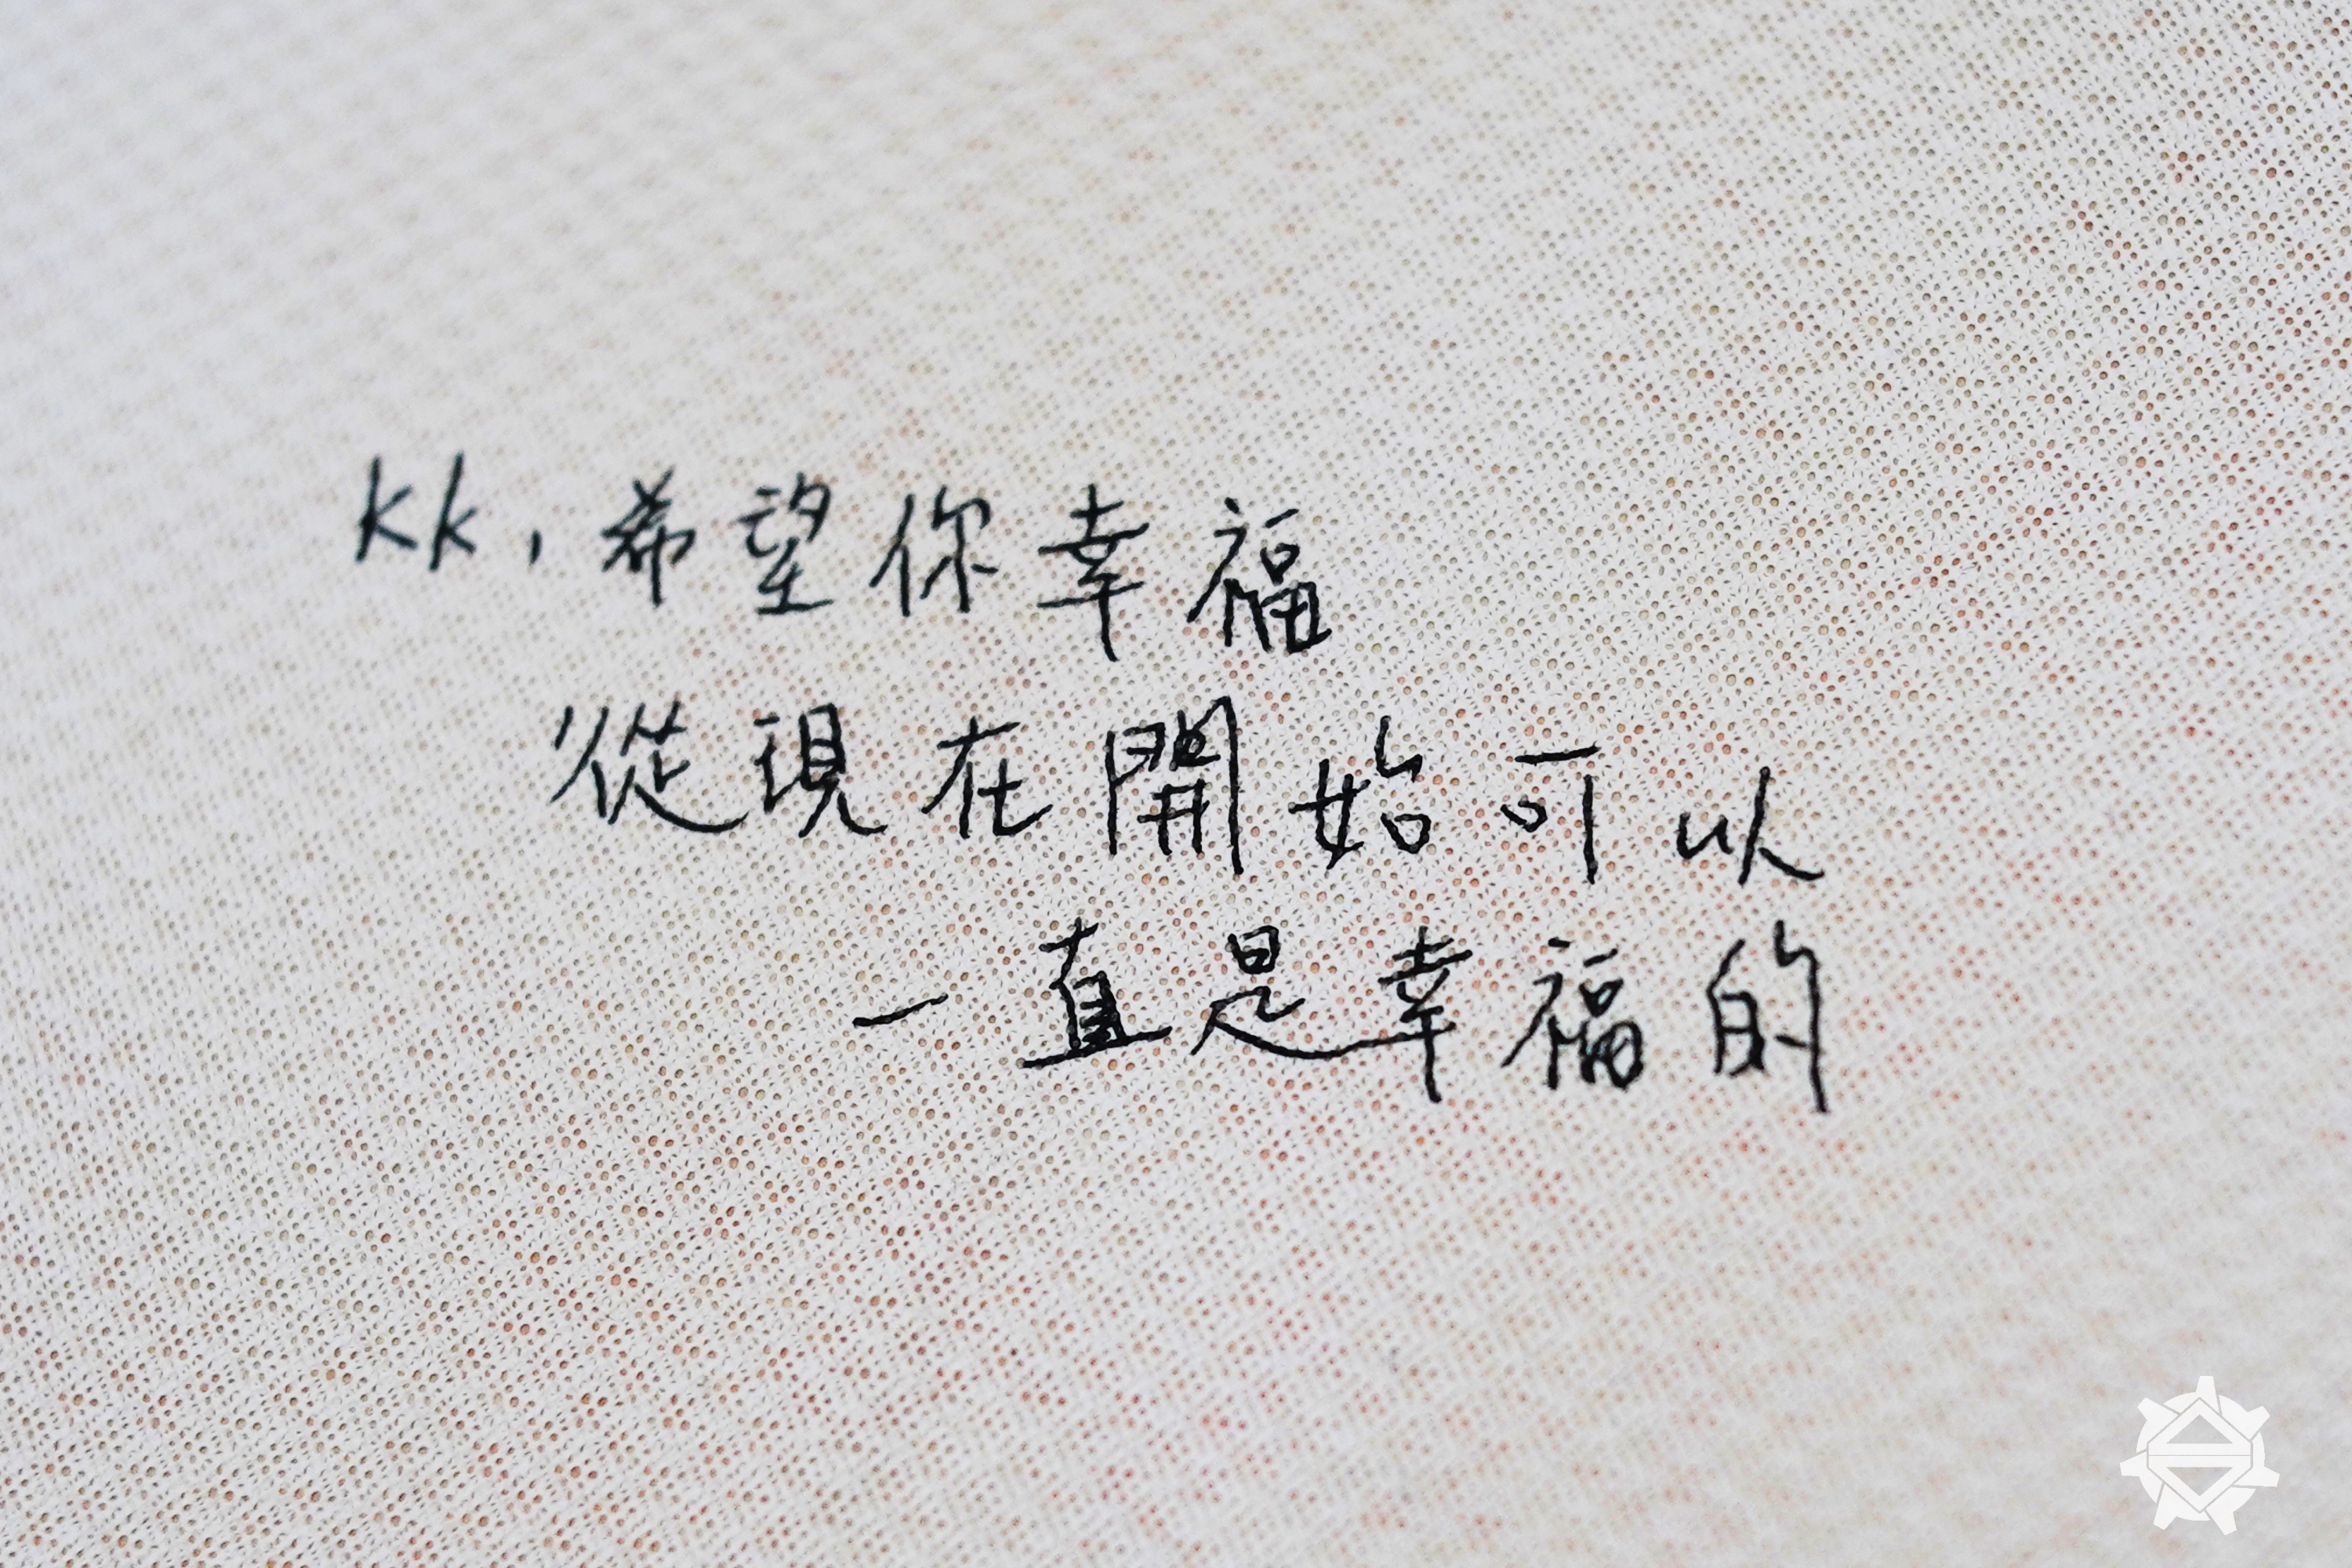 kk，希望你幸福
從現在開始可以
一直是幸福的